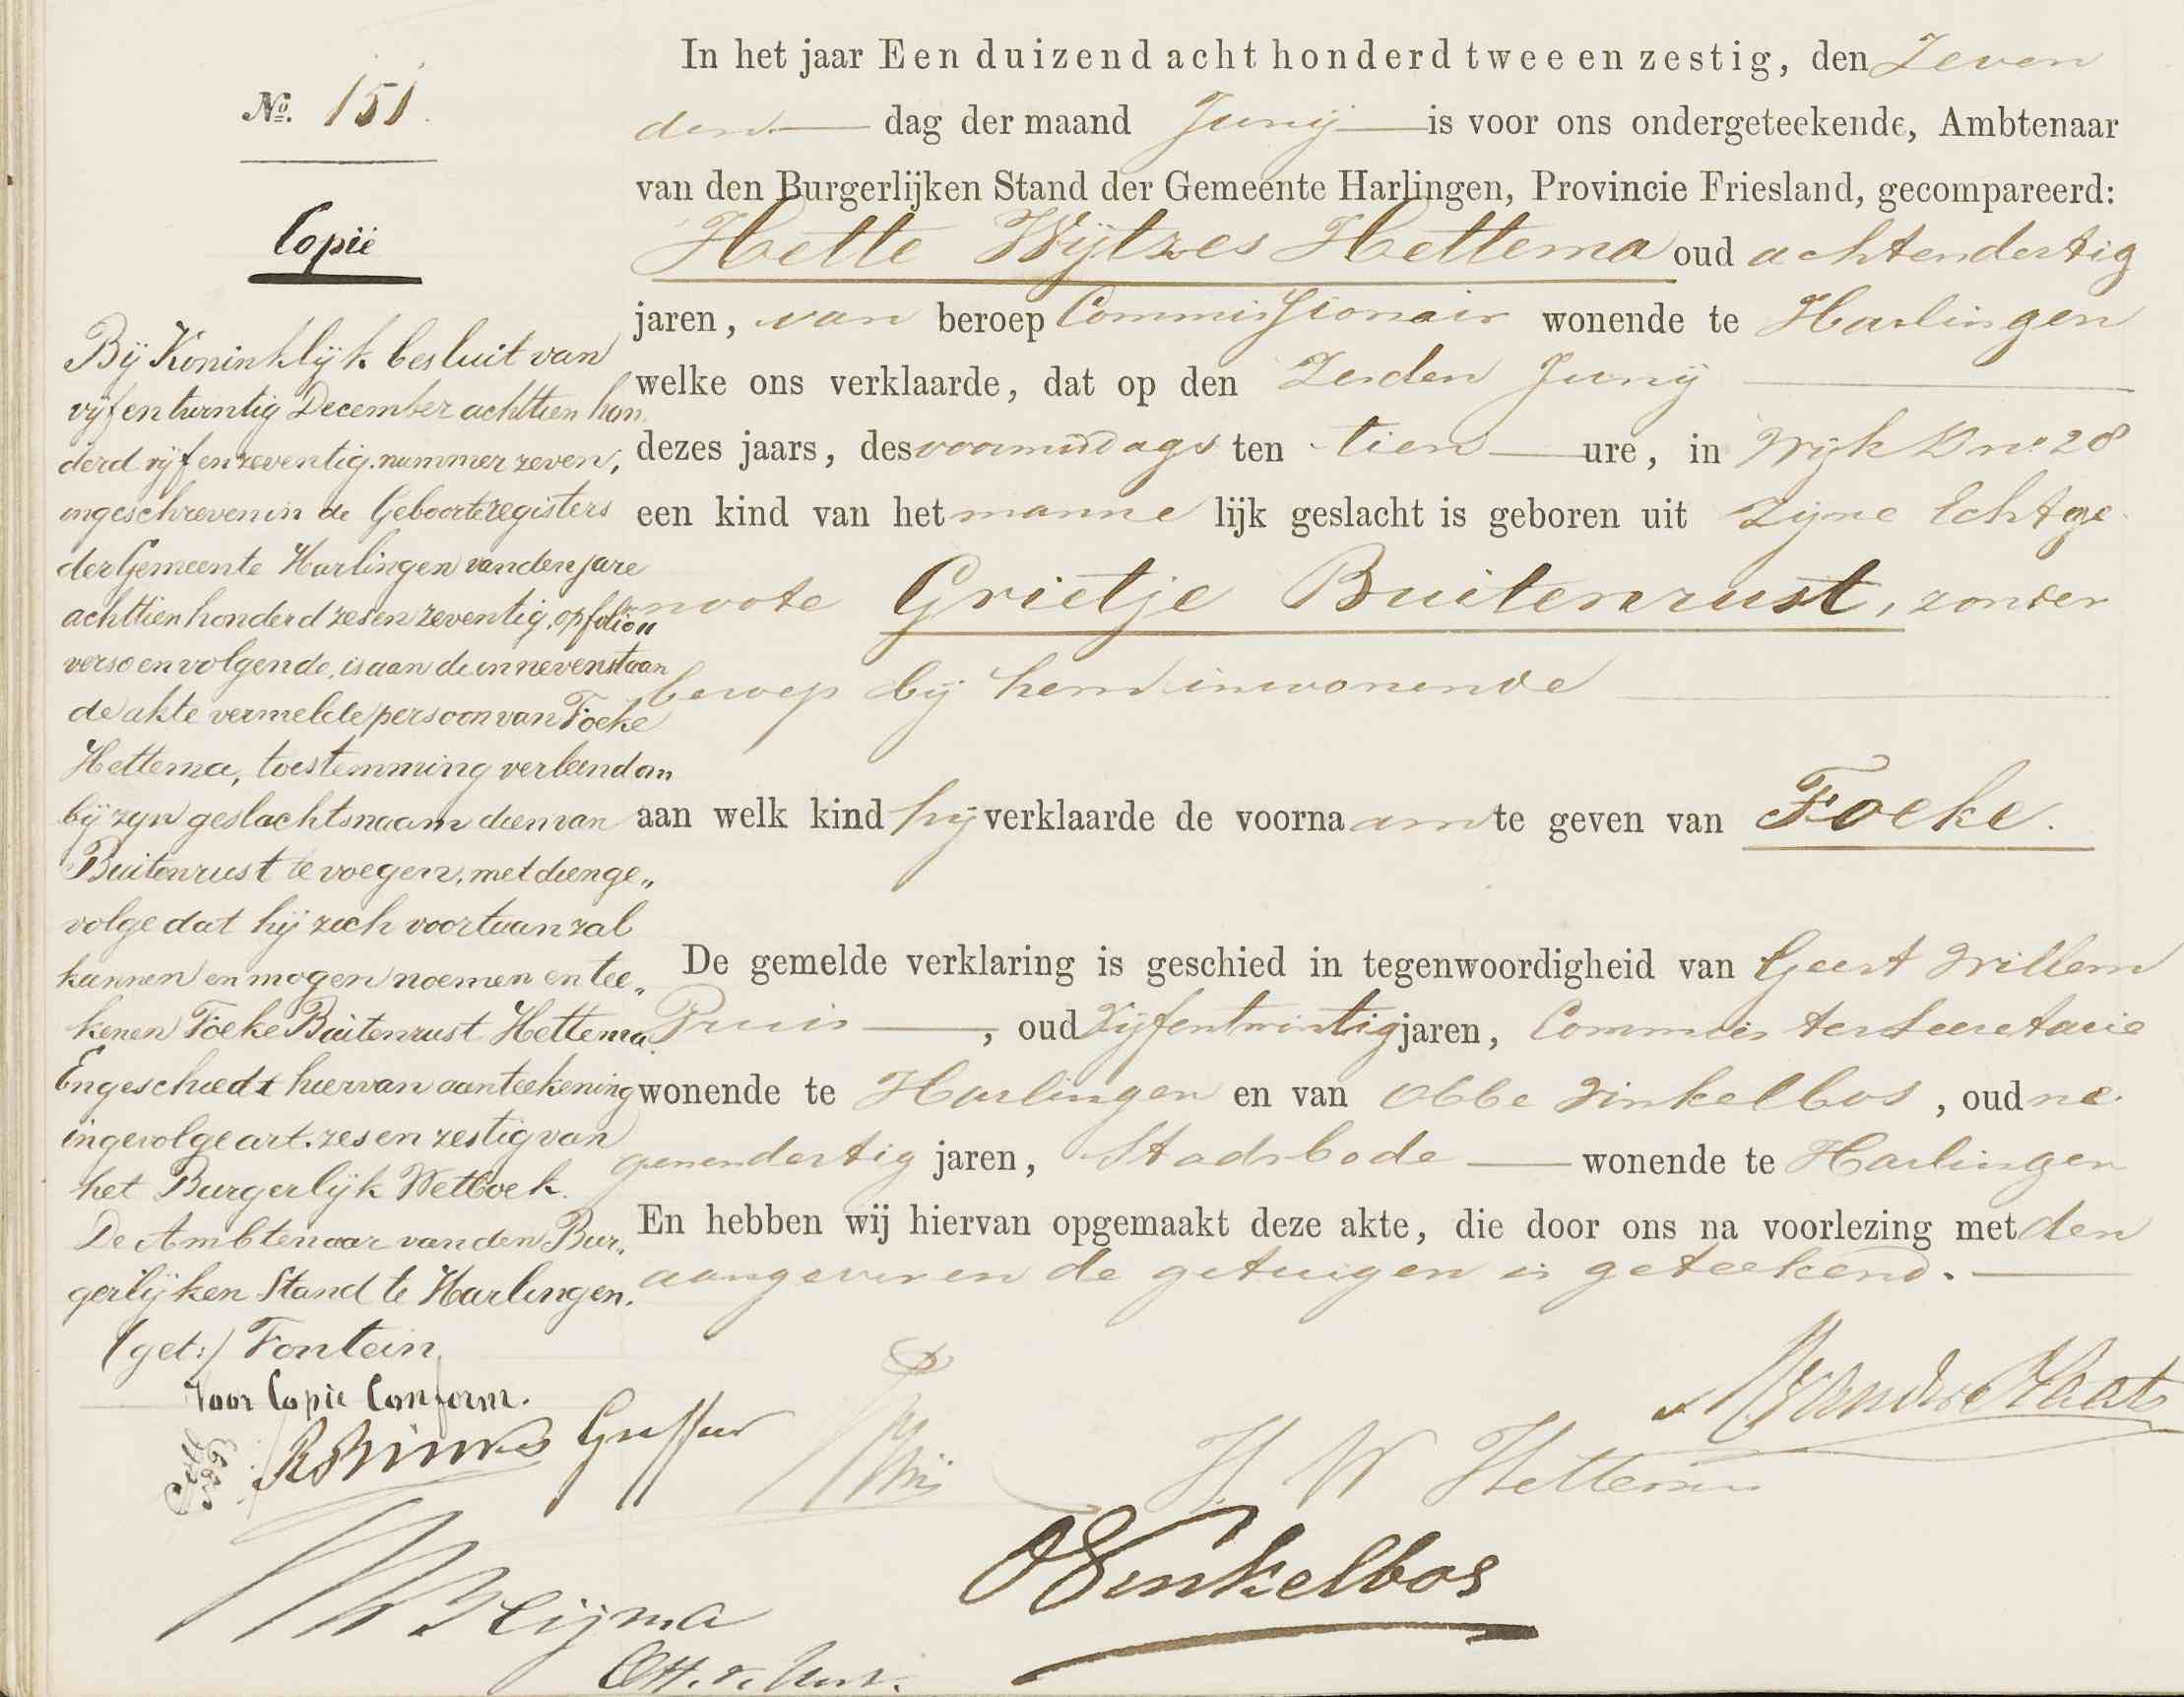 No. 151.
Copie
Bij Koninklijk besluit van
vijf en twintig December achttien hon
derd vijf en zeventig, nummer zeven,
ingeschreven in de Geboorteregisters
der Gemeente Harlingen van den jare
achttien honderd zes en zeventig, op folio
verso en volgende, is aan de in nevenstaan
de akte vermelde persoon van Foeke
Hettema, toestemming verleend om
bij zijn geslachtsnaam dien van
Buitenrust te voegen, met dien ge„
volge dat hij zich voortaan zal
kunnen en mogen noemen en tee„
kenen Foeke Buitenrust Hettema.
En geschiedt hiervan aanteekening
ingevolge art. zes en zestig van
het Burgerlijk Wetboek.
De Ambtenaar van den Bur„
gerlijken Stand te Harlingen.
(get:) Fontein
Voor Copie Conform.
Griffier
In het jaar Een duizend acht honderd twee en zestig, den Zeven
den dag der maand Junij is voor ons ondergeteekende, Ambtenaar
van den Burgerlijken Stand der Gemeente Harlingen, Provincie Friesland, gecompareerd:
Hette Wijtzes Hettema oud achtendertig
jaren, van beroep Commissionair wonende te Harlingen
welke ons verklaarde, dat op den Zesden Junij
dezes jaars, des voormiddags ten tien ure, in Wijk D no. 28
een kind van het mannelijk geslacht is geboren uit Zijne Echtge
noote Grietje Buitenrust, zonder
beroep bij hem inwonende
aan welk kind hij verklaarde de voornaam te geven van Foeke.
De gemelde verklaring is geschied in tegenwoordigheid van Geert Willem
Pruis, oud Vijfentwintig jaren, Commies ter Secretarie
wonende te Harlingen en van Obbe Winkelbos, oud ne
genendertig jaren, Stadsbode wonende te Harlingen
En hebben wij hiervan opgemaakt deze akte, die door ons na voorlezing met den
aangever en de getuigen is geteekend.
H W Hettema
OWinkelbos